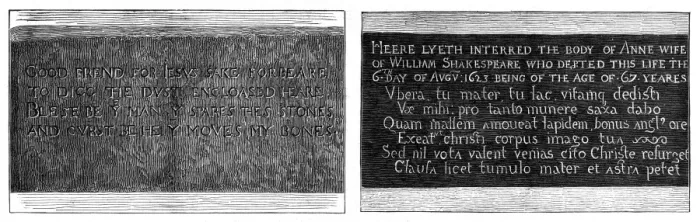 GOOD FREND FOR IESVS SAKE FORBEARE
TO DIGG THE DVST ENCLOASED HEARE
BLESE BE Y MAN Y SPARES THES STONES
AND CVRST BE HE Y MOVES MY BONES
HEERE LYETH INTERRED THE BODY OF ANNE WIFE
OF WILLIAM SHAKESPEARE WHO DEPTED THIS LIFE THE
6TH DAY OF AVGV: 1623 BEING OF THE AGE OF 67 YEARES
Vbera, tu mater tu lac, vitamq dedisti
Væ mihi: pro tanto munere saxa dabo
Quam mallem amoueat lapidem, bonus angl' ore
Exeat christi corpus imago tua
Sed nil vota valent venias cito Christe resurget
Clausa licet tumulo mater et astra petet